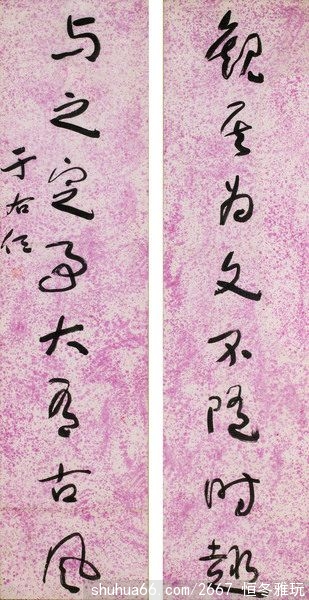 觀其為文不隨時趣
與之定事大有古風
于右任
shuhua66.com/2667 恒冬雅玩